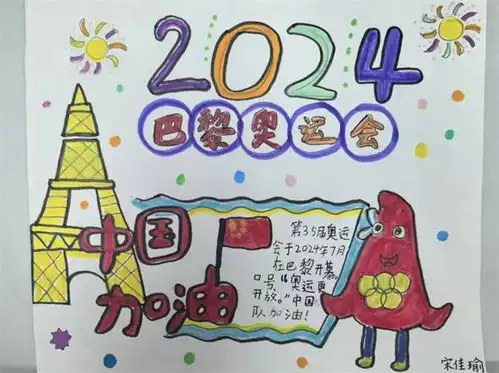 2024
巴黎奥运会
中国
加油
第35届奥运
会于2024年7月
在巴黎开幕
口号“奥运更
开放。”中国
队加油！
宋佳瑜